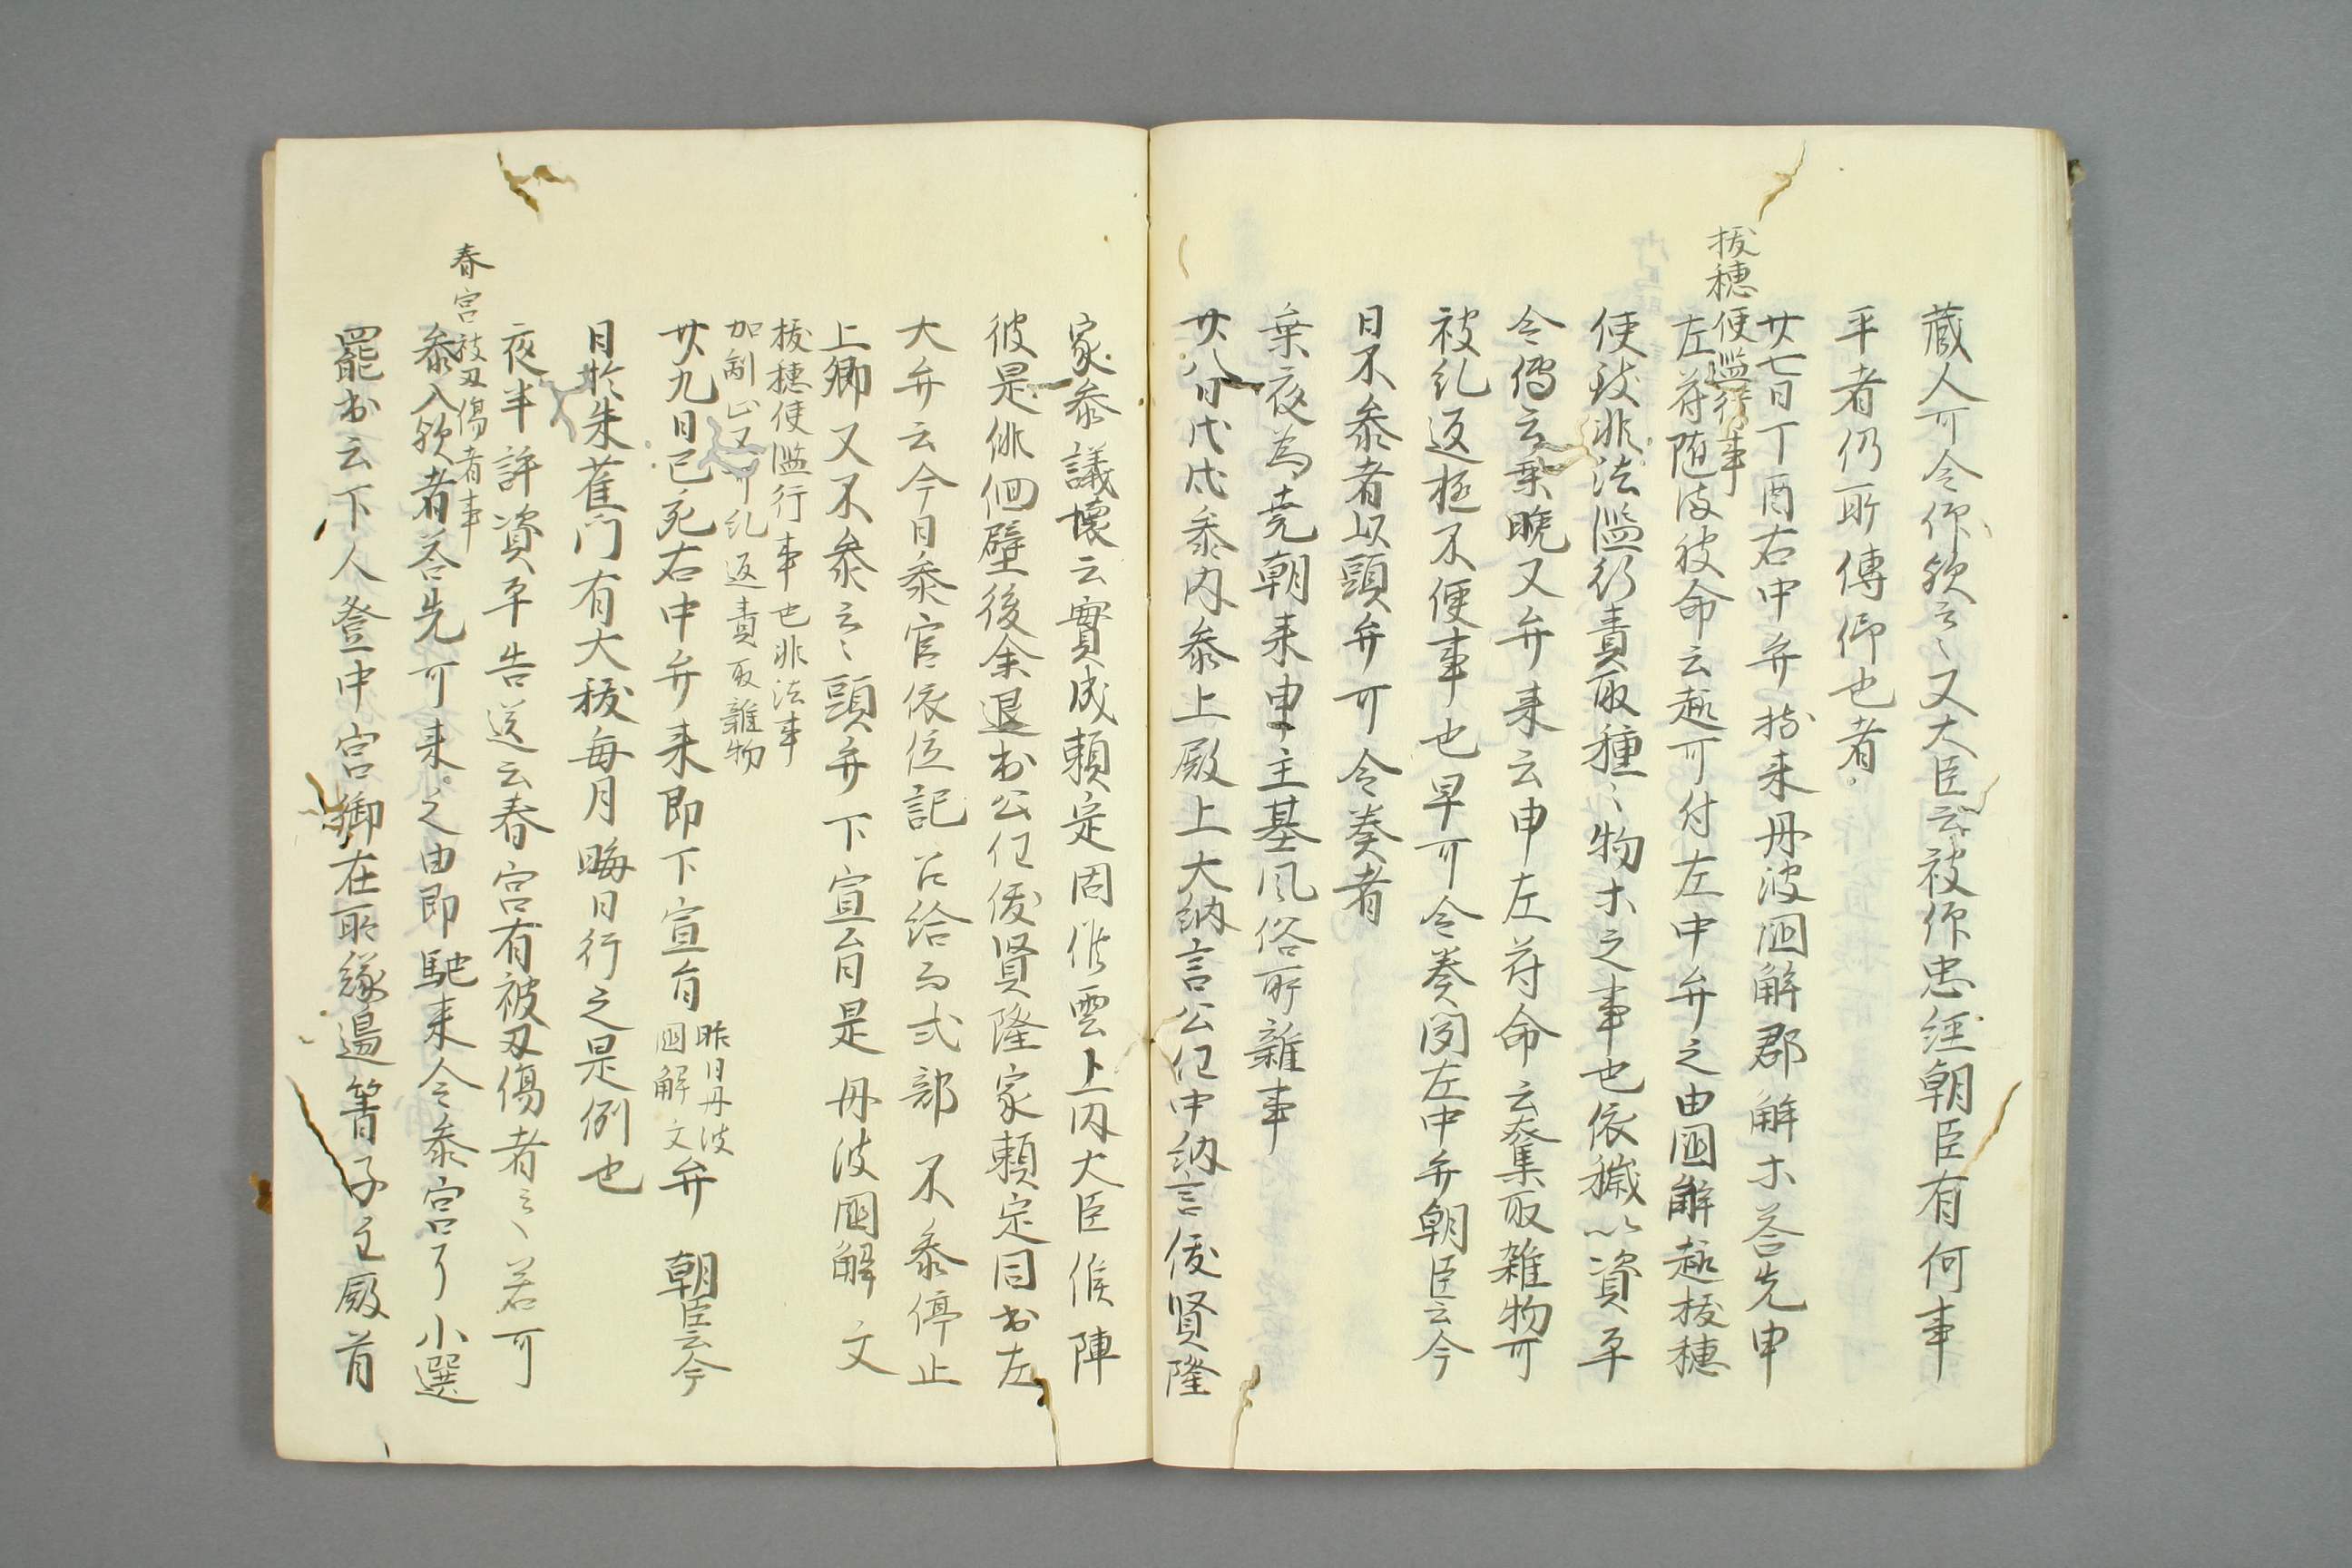 蔵人可令仰欤云〻又大臣云被仰忠経朝臣有何事
乎者仍所傳仰也者
拔穂使濫行事
廿七日丁酉右中弁持来丹波國解郡解ホ答先申
左府随後被命云趣可付左中弁之由國解趣拔穂
使致非法濫行責取種〻物ホ之事也依穢以資平
令傳云乗晩又弁来云申左府命云奪取雑物可
被糺返極不便事也早可令奏聞左中弁朝臣云今
日不参者以頭弁可令奏者
乗夜為尭朝来申主基風俗所雜事
廿八日戊戌参内参上殿上大納言公任中納言俊賢隆
家参議懐云實成頼定固候雲上内大臣候陣
彼是俳佪壁後余退出公任俊賢隆家頼定同出左
大弁云今日参官依位記召給而式部不参停止
上卿又不参云〻頭弁下宣旨是丹波國解文
拔穂使濫行事也非法事
加制止又可糺返責取雜物
廿九日己亥右中弁来即下宣旨昨日丹波國解文弁 朝臣云今
日於朱雀门有大祓毎月晦日行之是例也
夜半許資平告送云春宮有被刃傷者云〻若可
春宮被刃傷者事
参入欤者答先可来之由即馳来令参宮了小選
罷出云下人登中宮御在所縁邊箐子主殿首